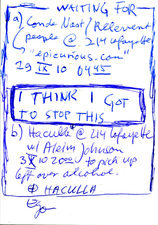 WAITING FOR
a) Conde Nast / Relevent
people @ 214 Lafayette
"epicurious.com"
19 IX 10 0445
I THINK I GOT
TO STOP THIS
b) Haculla @ 214 Lafayette
w/ Johnson
3 X 10 2000 to pick up
left over alcohol.
HACULLA